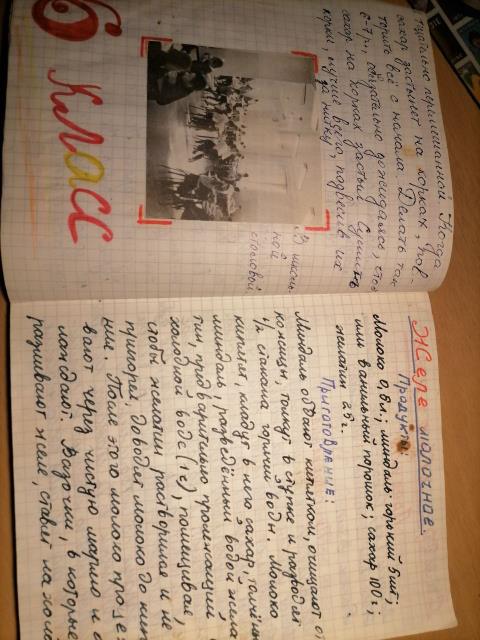 тщательно перемешанной. Когда
сахар застынет на корках, пов-
торить всё с начала. Делать так
6-7 р., обязательно дожидаясь, чтоб
сахар на корках застыл. Сушить
корки, лучше всего, подвесив их
на нитку.
В школь-
ной
столовой.
6 класс
Желе молочное.
Продукты:
Молоко 0,8 л; миндаль горький 5 шт;
или ванильный порошок; сахар 100 г;
желатин 28 г.
Приготовление:
Миндаль обдают кипятком, очищают от
кожицы, толкут в ступке и разводят
1/2 стакана горячей воды. Молоко
кипятят, кладут в него сахар, толчёный
миндаль, разведённый водой жела-
тин, предварительно промокший в
холодной воде (1 с), помешивая,
чтобы желатин растворился и не
пригорел, доводят молоко до кипе-
ния. После этого молоко проце-
вают через чистую марлю и
лаждают. Вазочки, в которые
разливают желе, ставят на холод